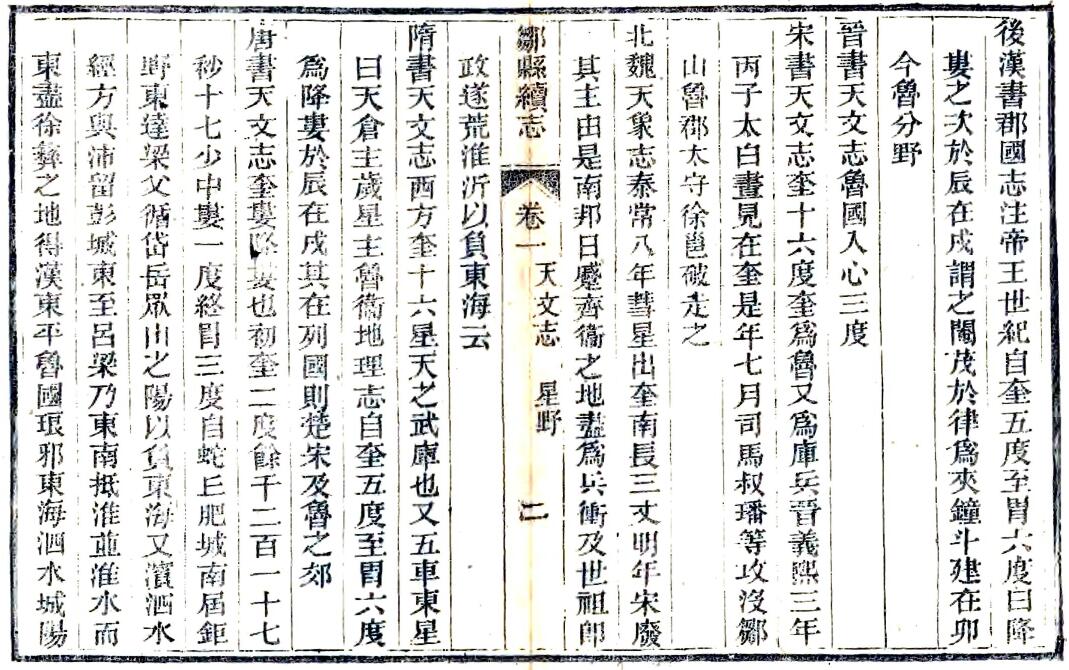 後漢書郡國志注帝王世紀自奎五度至胃六度曰降
婁之次於辰在戍謂之閹茂於律爲夾鐘斗建在卯
今魯分野
晉書天文志魯國入心三度
宋書天文志奎十六度奎爲魯又爲庫兵晉義熙三年
丙子太白晝見在奎是年七月司馬叔璠等攻沒鄒
山魯郡太守徐邕破走之
北魏天象志泰常八年彗星出奎南長三丈明年宋廢
其主由是南邦日蹙齊衞之地盡爲兵衝及世祖即
政遂荒淮沂以負東海云
鄒縣續志
卷一
天文志
星野
二
隋書天文志西方奎十六星天之武庫也又五車東星
曰天倉主歲星主魯衞地理志自奎五度至胃六度
爲降婁於辰在戍其在列國則楚宋及魯之郊
唐書天文志奎婁降婁也初奎二度餘千二百一十七
秒十七少中婁一度終胃三度自蛇丘肥城南屆鉅
野東達梁父循岱岳眾山之陽以負東海又濱泗水
經方與沛留彭城東至呂梁乃東南抵淮並淮水而
東盡徐彝之地得漢東平魯國琅邪東海泗水城陽